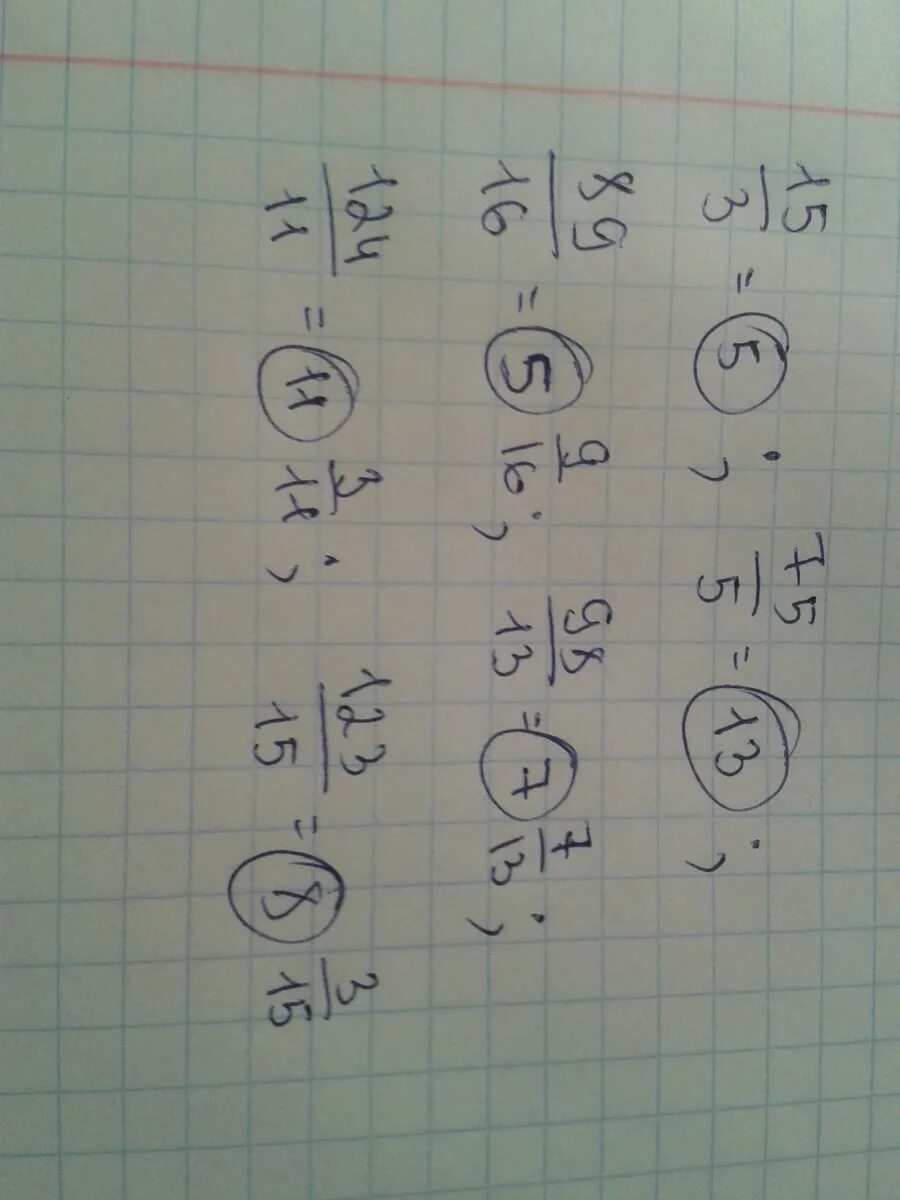 15/3 = 5 ; 75/5 = 13 ;
89/16 = 5 9/16 ; 98/13 = 7 7/13 ;
124/11 = 11 3/11 ; 123/15 = 8 3/15